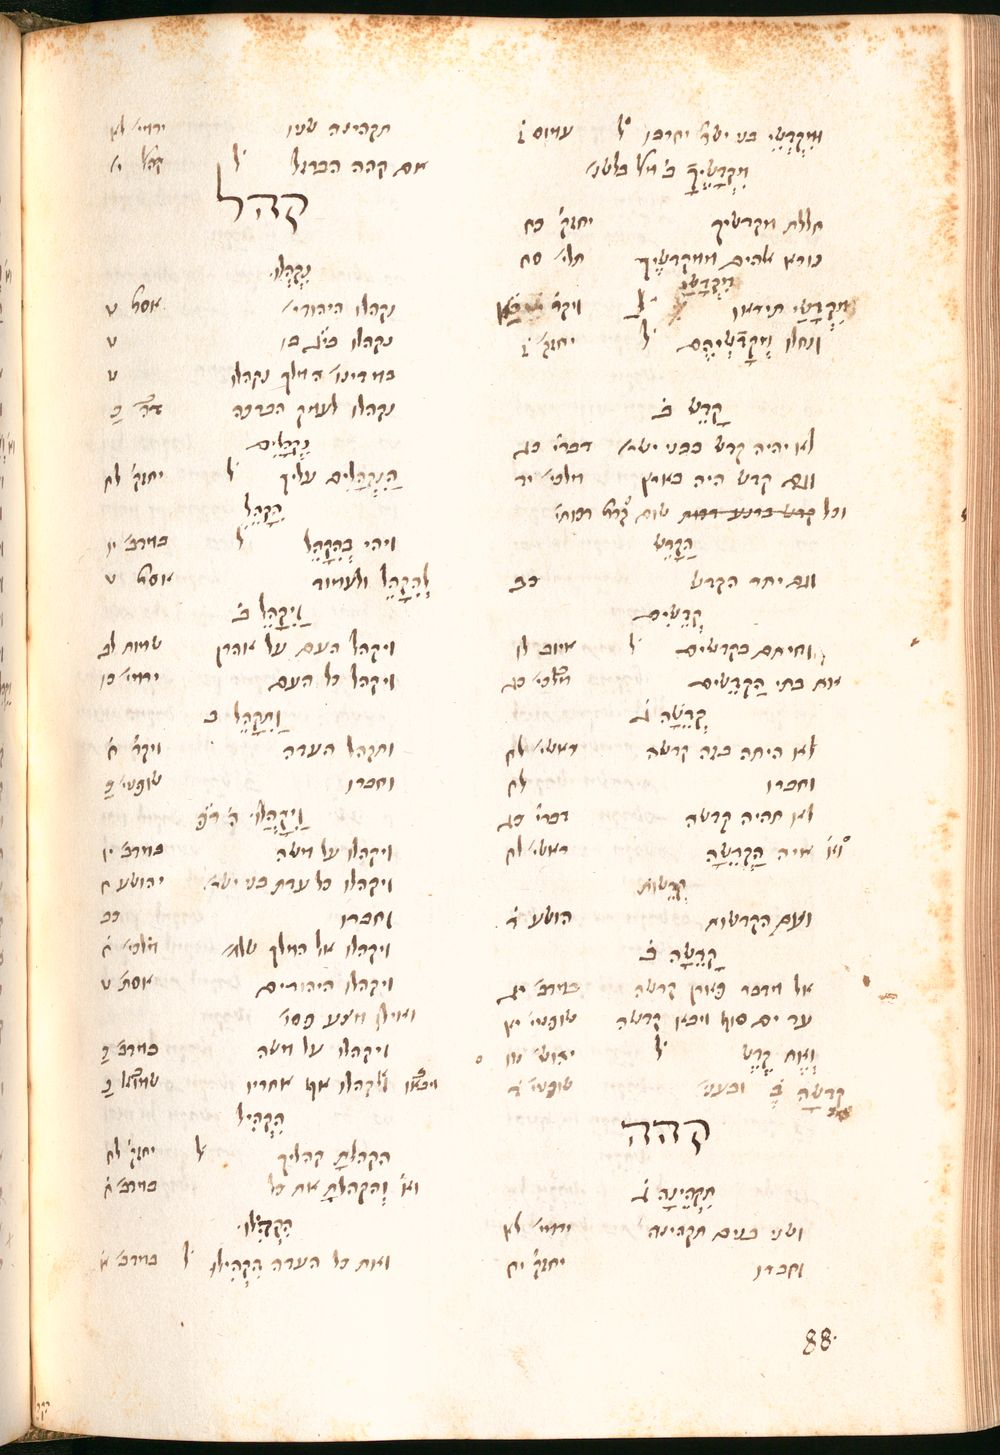 וּמִקְדְּשֵׁי בני ישר׳ יחרבו ל̊ עמוס ז̇
מִקְדָּשֶׁיךָ
חללת מקדשיך יחזק׳ כח
נורא אלהים ממקדשיך תלי׳ סח
מִקְדָּשַׁי
מִקְדָּשַׁי תיראו ויקר׳
ונחלו מְקָדְשֵׁיהֶם ל̇ יחזק׳ ז̇
קָדֵשׁ ב̇
לא יהיה קדש בבני ישר׳ דברי׳ כג
וגם קדש היה בארץ מלכי׳ יד
וכל קדש ברנע
הַקָּדֵשׁ
וגם יתר הקדש כב
קְדֵשִׁים
וחיתם בקדשים ל̇ איוב לו
את בתי הַקְּדֵשִׁים מלכי׳ כג
קְדֵשָׁה ג̇
לא היתה בזה קדשה ראשי׳ לח
וחברו לח
לא תהיה קדשה דברי׳ כג
איה הַקְּדֵשָׁה ראשי׳ לח
קְדֵשׁוֹת
ועם הקדשות הושע ד̇
קָדֵשָׁה ב̇
אל מדבר פארן קדשה במדב׳ יג
עד ים סוף ויבא קדשה שופטי׳ יא
וְאֶת קֶדֶשׁ ל̇
קֶדְשָׁה שופטי׳ ד̇
קהה
תִּקְהֶינָה ג̇
ושני בנים תקהינה ירמי׳ לא
וחברו יחזק׳ יח
88
תקהינה שניו ירמי׳ לא
אם קהה הברזל ל̇ קהל׳ י׳
קהל
נִקְהֲלוּ
נקהלו היהודי׳ אסת׳ ט
נקהלו בי״ג בו ט
במדינו׳ המלך נקהלו ט
נקהלו לעמק הברכה דה׳ ב
נִקְהָלִים
הַנִּקְהָלִים עליך ל̇ יחזק׳ לח
הִקָּהֵל
ויהי בְּהִקָּהֵל ל̇ במדב׳ יז
לְהִקָּהֵל ולעמוד אסת׳ ט
וַיִּקָּהֵל ב̇
ויקהל העם על אהרן שמות לב
ויקהל כל העם ירמי׳ כו
וַתִּקָּהֵל ב
ותקהל העדה ויקר׳ ח̇
וחברו שופטי׳ כ
וַיִּקָּהֲלוּ
ויקהלו על משה במדב׳ יו
ויקהלו כל עדת בני ישר׳ יהושע יח
וחברו כב
ויקהלו אל המלך שלמ׳ מלכי׳ ח̇
ויקהלו היהודים אסת׳ ט
ויקהלו על משה במדב׳ כ
אחריו שמואל כ
הִקְהִיל
הקהלתָ קהליך ל̇ יחזק׳ לח
ואו׳ וְהקהלתָּ את כל במדב׳ ח̇
הִקְהִילוּ
ואת כל העדה הִקְהִילוּ ל̇ במדב׳ א